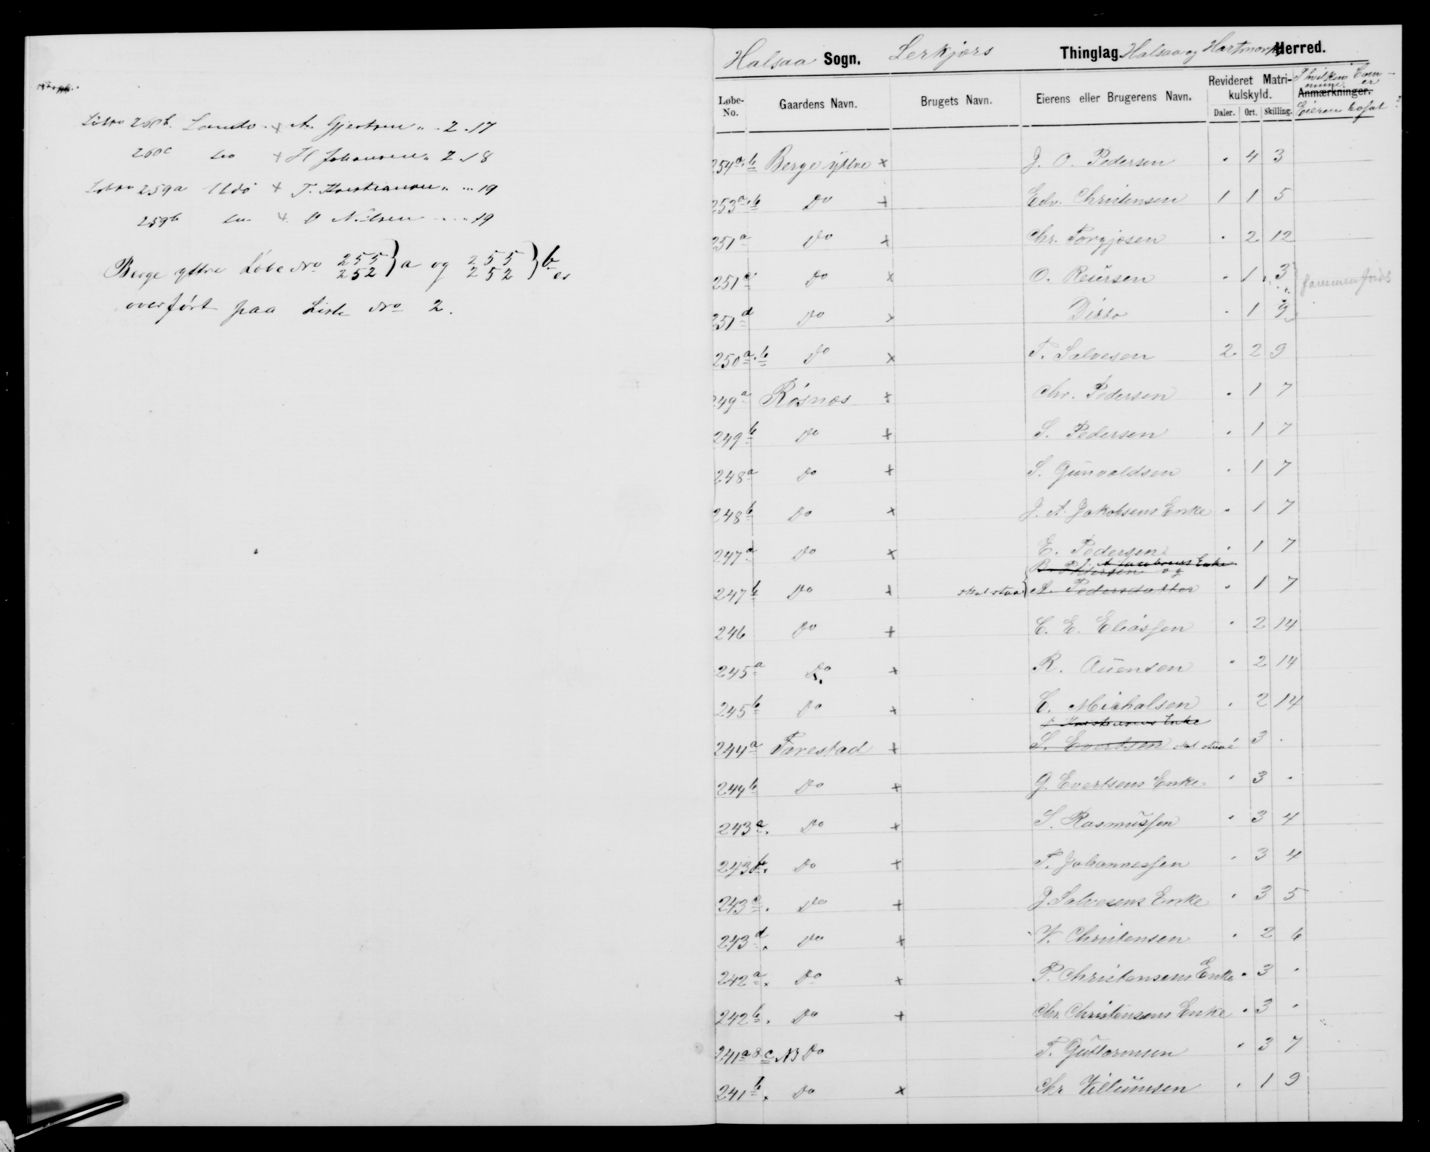 Løbno 260b. Lande + A. Gjertsen „ 2. 17
260c do + H Johansen „ 2. 18
Løbno 259a Udø + T. Kristiansen „ „ 19
259b do + P Nilsen „ „ 19
Berge yttre Løbe Nro 255 252 } a og 255 252 } b er
overført paa Liste Nro 2.
Halsaa Sogn. Lerkjærs Thinglag Halsaa og Hartmark Herred.
Løbe-No. Gaardens Navn. Brugets Navn. Eierens eller Brugerens Navn. Revideret Matrikulskyld. Daler. Ort. Skilling. Anmærkninger. I hvilken Commune er Eieren bosat ?
254a.b Berge yttre × J. O. Pedersen „ 4 3
253a.b Do + Edv. Christensen 1 1 5
251a Do × Chr. Torgjesen „ 2 12
251c Do × O. Reiersen „ 1 3 sammenføies
251d Do × Ditto „ 1 9
250a.b Do × T. Salvesen 2 2 9
249a Rosnæs + Chr. Pedersen „ 1 7
249b Do + S. Pedersen „ 1 7
248a Do + S. Gunvaldsen „ 1 7
248b Do × J. A. Jakobsens Enke „ 1 7
247a Do × E. Pedersen „ 1 7
B. Pedersen og A Jacobsens Enke
247b Do + skal staa { A. Pedersdatter „ 1 7
246 Do + C. E. Eliassen „ 2 14
245a Do + R. Auensen „ 2 14
245b Do + C. Michalsen „ 2 14
Enke
244a Tarestad + S. Evertsen skal staae 3 „
244b Do + G. Evertsens Enke „ 3 „
243a. Do + S. Rasmussen „ 3 4
243b. Do + T. Johannessen „ 3 4
243c. Do + J. Salvesens Enke „ 3 5
243d. Do × V. Christensen „ 2 6
242a. Do + P. Christensens Enke „ 3 „
242b. Do + Chr. Christensens Enke „ 3 „
241a & c NB Do T. Guttormsen „ 3 7
241b. Do × Chr. Villumsen „ 1 9